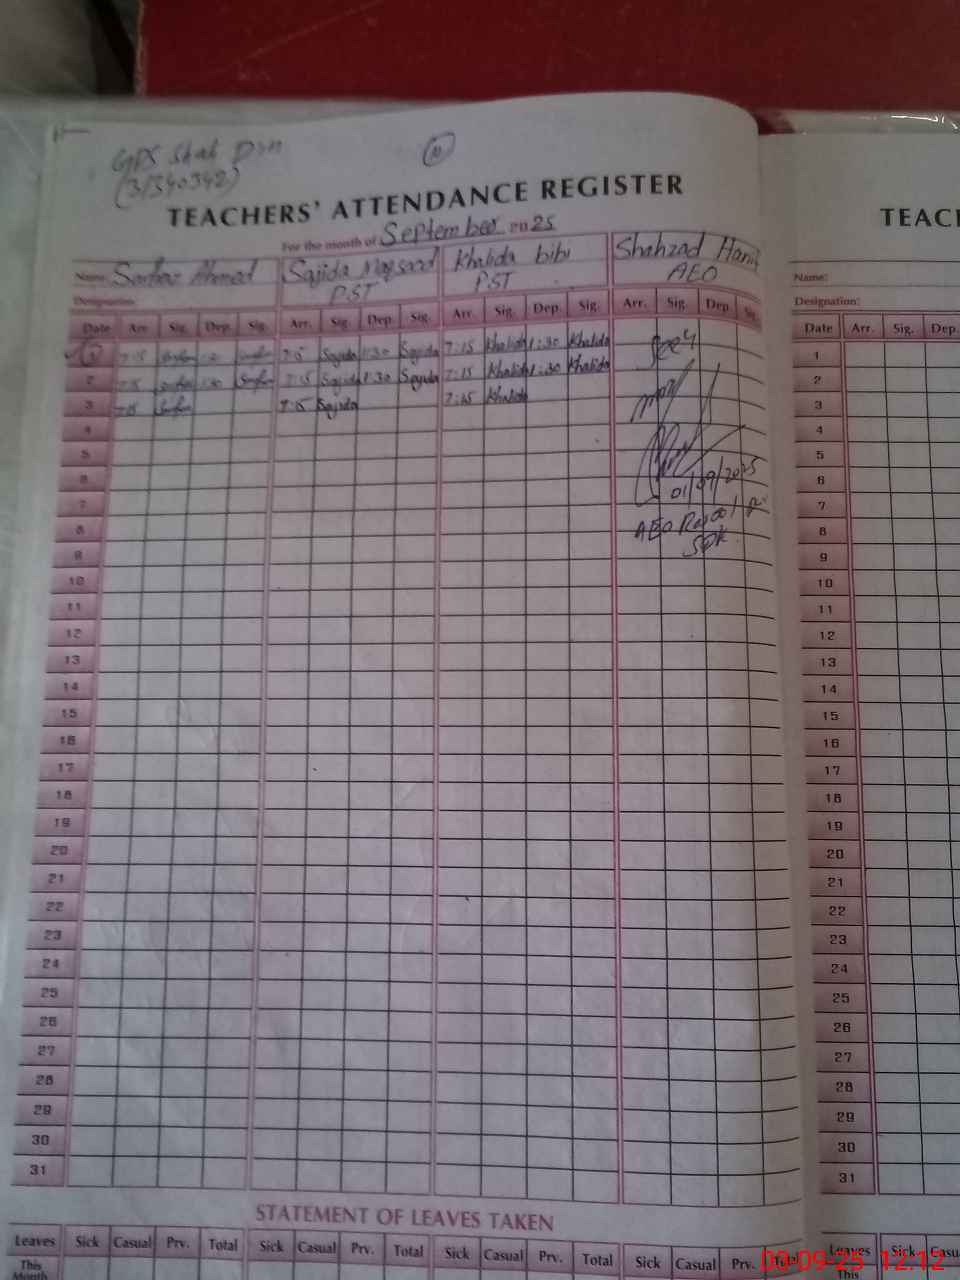 GPS Shah Din
(31340342)
TEACHERS' ATTENDANCE REGISTER
For the month of September 2025
Name: Sarfraz Ahmad Sajida Maqsood Khalida bibi Shahzad Hanif
Designation: PST PST AEO
Date Arr. Sig. Dep. Sig. Arr. Sig. Dep. Sig. Arr. Sig. Dep. Sig. Arr. Sig. Dep. Sig.
1 7:15 1:30 Sajida 1:30 Sajida 7:15 Khalida 1:30 Khalida Seen
2 7:15 1:30 7:15 Sajida 1:30 Sajida 7:15 Khalida 1:30 Khalida
3 7:15 7:15 Sajida 7:15 Khalida
4
5
6 01/09/2025
7
8 AEO
9
10
11
12
13
14
15
16
17
18
19
20
21
22
23
24
25
26
27
28
29
30
31
STATEMENT OF LEAVES TAKEN
Leaves Sick Casual Prv. Total Sick Casual Prv. Total Sick Casual Prv. Total Sick Casual Prv. Total
This
Month
TEAC
Name:
Designation:
Date Arr. Sig. Dep.
1
2
3
4
5
6
7
8
9
10
11
12
13
14
15
16
17
18
19
20
21
22
23
24
25
26
27
28
29
30
31
Leaves Sick Casu
This
03-09-25 12:12